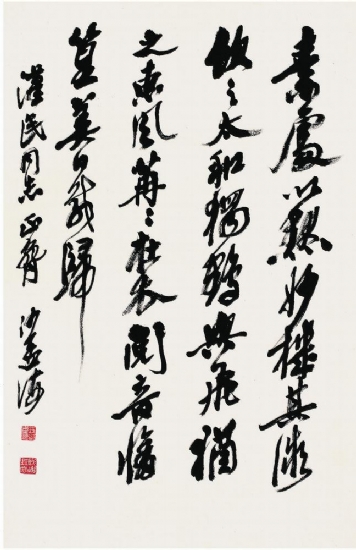 素處以默妙機其微
飲之太和獨鶴與飛猶
之惠風苒〻在衣閱音脩
篁美曰載歸
漢民同志正 沙孟海